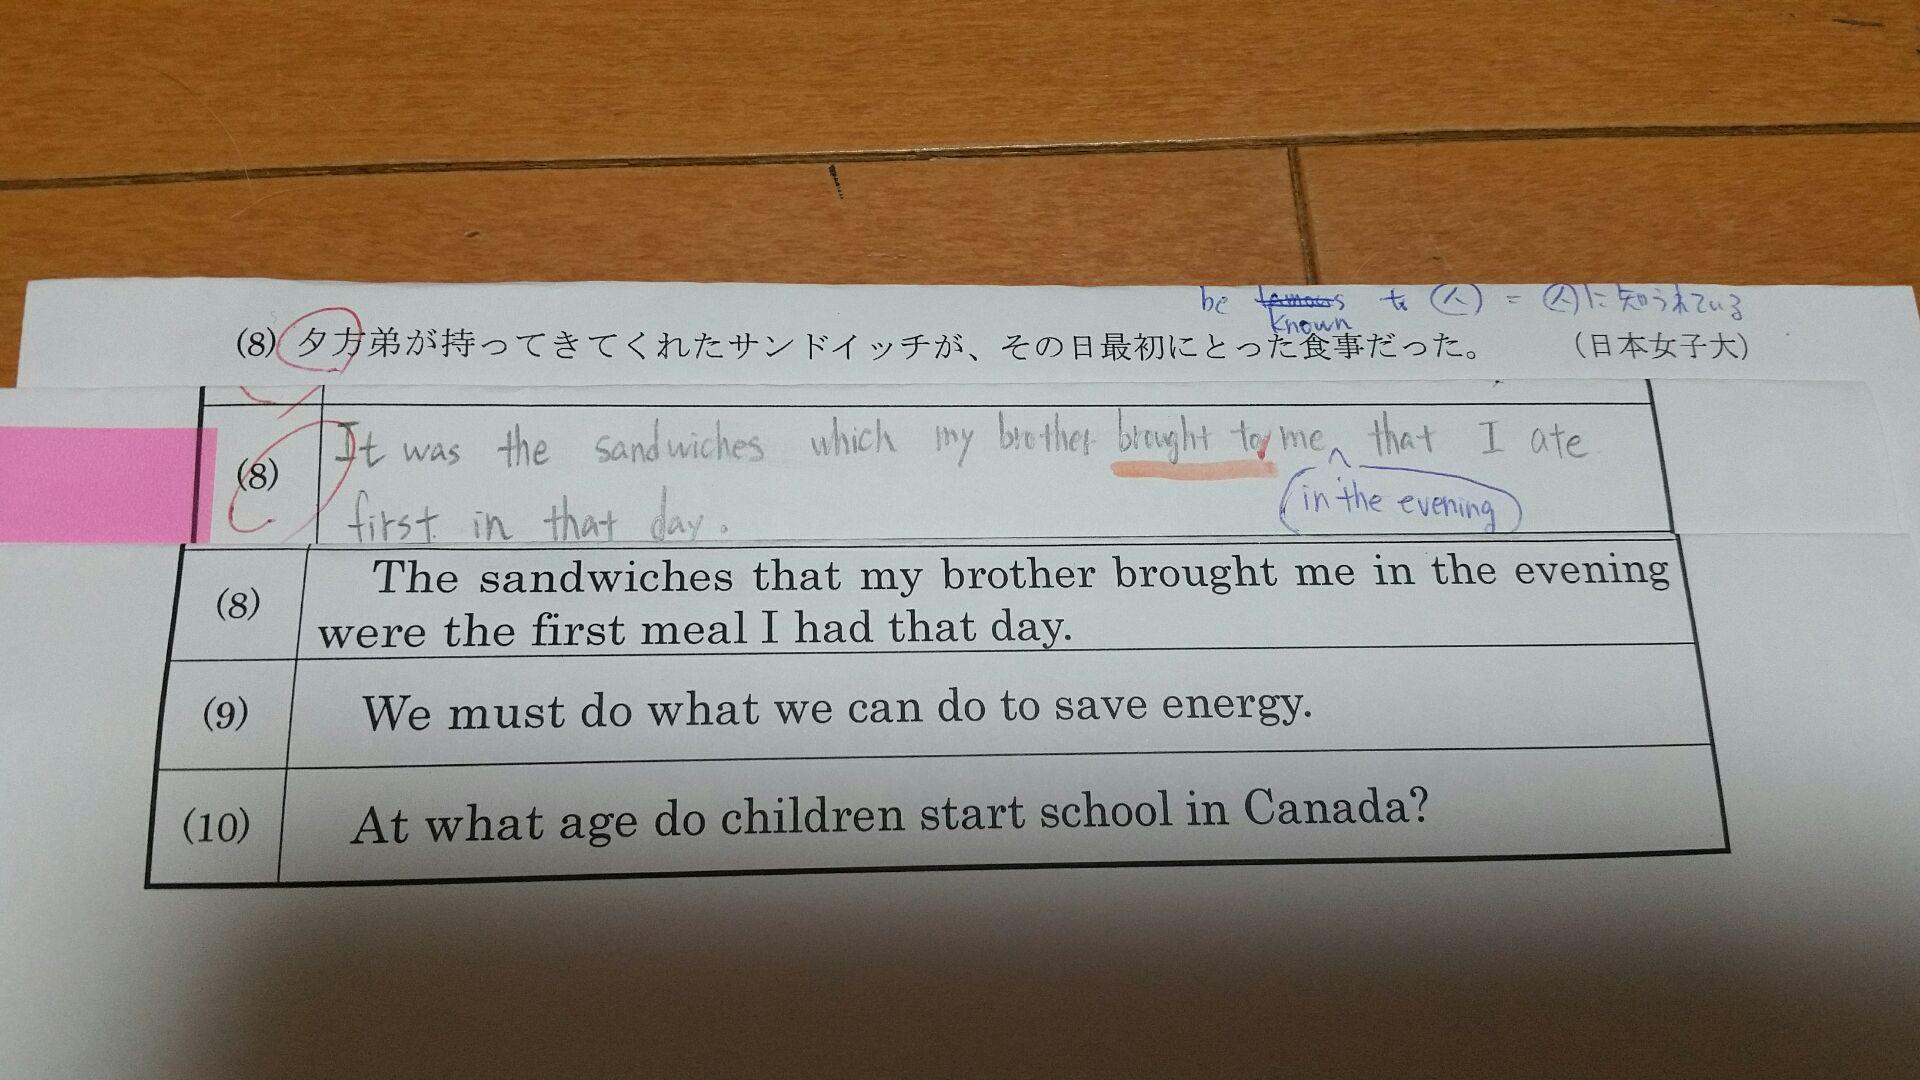 be famous to 人 = 人に知られている
known
(8) 夕方弟が持ってきてくれたサンドイッチが、その日最初にとった食事だった。 (日本女子大)
(8) It was the sandwiches which my brother brought to me that I ate
in the evening
first in that day.
(8) The sandwiches that my brother brought me in the evening
were the first meal I had that day.
(9) We must do what we can do to save energy.
(10) At what age do children start school in Canada?